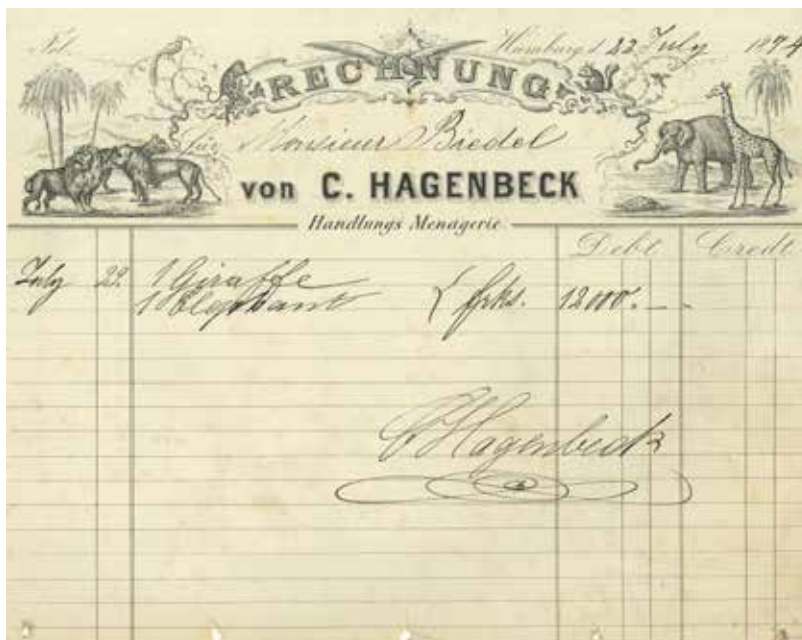 Fol. Hamburg d. 22 July 1874
RECHNUNG
für Monsieur Biedel
von C. HAGENBECK
Handlungs Menagerie.
Debt Credt
July 22. 1 Giraffe
1 Elephant { frks. 12000.—
C Hagenbeck